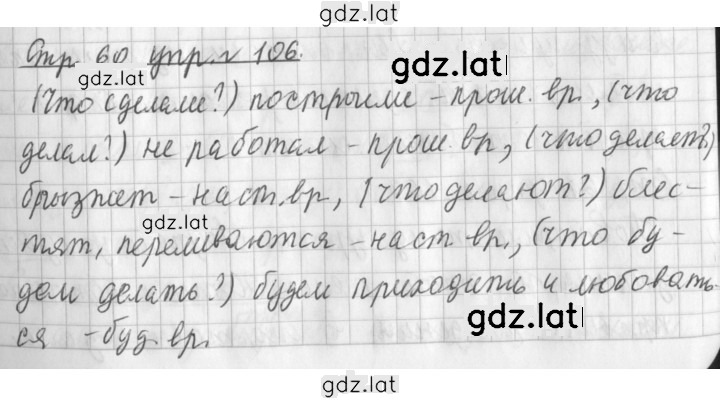 gdz.lat
Стр. 60 упр. № 106.
gdz.lat
gdz.lat
(Что сделали?) построили – прош. вр., (что
делал?) не работал – прош. вр., (что делает?)
брызжет – наст. вр., (что делают?) блес-
gdz.lat
тят, переливаются – наст. вр., (что бу-
дем делать?) будем приходить и любовать-
gdz.lat
ся – буд. вр.
gdz.lat